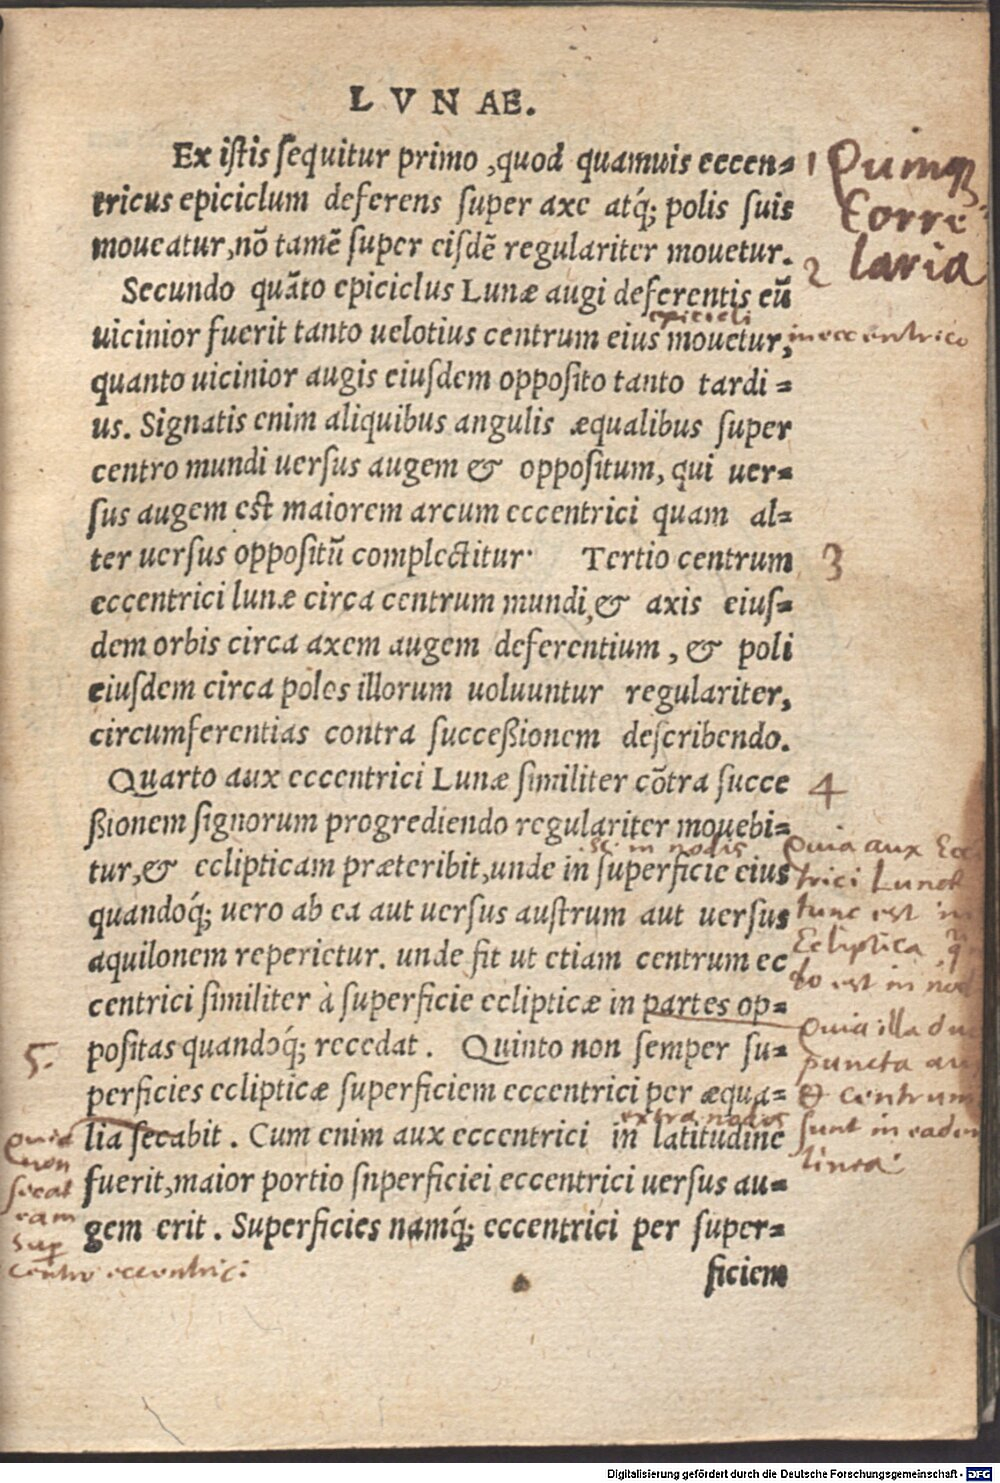 LVNAE.
Ex iſtis ſequitur primo ,quod quamuis eccen=
tricus epiciclum deferens ſuper axe atq́; polis ſuis
moueatur,nõ tamẽ ſuper eiſdẽ regulariter mouetur.
Secundo quãto epiciclus Lunæ augi deferentis eũ
epicicli
uicinior fuerit tanto uelotius centrum eius mouetur,
in eccentrico
quanto uicinior augis eiuſdem oppoſito tanto tardi =
us. Signatis enim aliquibus angulis æqualibus ſuper
centro mundi uerſus augem & oppoſitum, qui uer=
ſus augem eſt maiorem arcum eccentrici quam al=
ter uerſus oppoſitũ complectitur· Tertio centrum
eccentrici lunæ circa centrum mundi,& axis eiuſ=
dem orbis circa axem augem deferentium , & poli
eiuſdem circa polos illorum uoluuntur regulariter,
circumferentias contra ſucceßionem deſcribendo.
Quarto aux eccentrici Lunæ ſimiliter cõtra ſucce
ßionem ſignorum progrediendo regulariter mouebi=
sc. in nodis
tur,& eclipticam præteribit,unde in ſuperficie eius
quandoq́; uero ab ea aut uerſus auſtrum aut uerſus
aquilonem reperietur. unde fit ut etiam centrum ec
centrici ſimiliter à ſuperficie eclipticæ in partes op=
poſitas quandoq́; recedat . Quinto non ſemper ſu=
perficies eclipticæ ſuperficiem eccentrici per æqua=
extra nodos
lia ſecabit . Cum enim aux eccentrici in latitudine
fuerit,maior portio ſnperficiei eccentrici uerſus au=
gem erit . Superficies namq́; eccentrici per ſuper=
ficiem
1
Corre
laria
2
3
4
Quia aux Ecc
trici Lunae
tunc est in
Ecliptica
do est in nod
Quia illa du
puncta au
& centrum
sunt in eadem
linea.
5.
quia
non
secat
eam
Sup
centro eccentrici
Digitalisierung gefördert durch die Deutsche Forschungsgemeinschaft - DFG